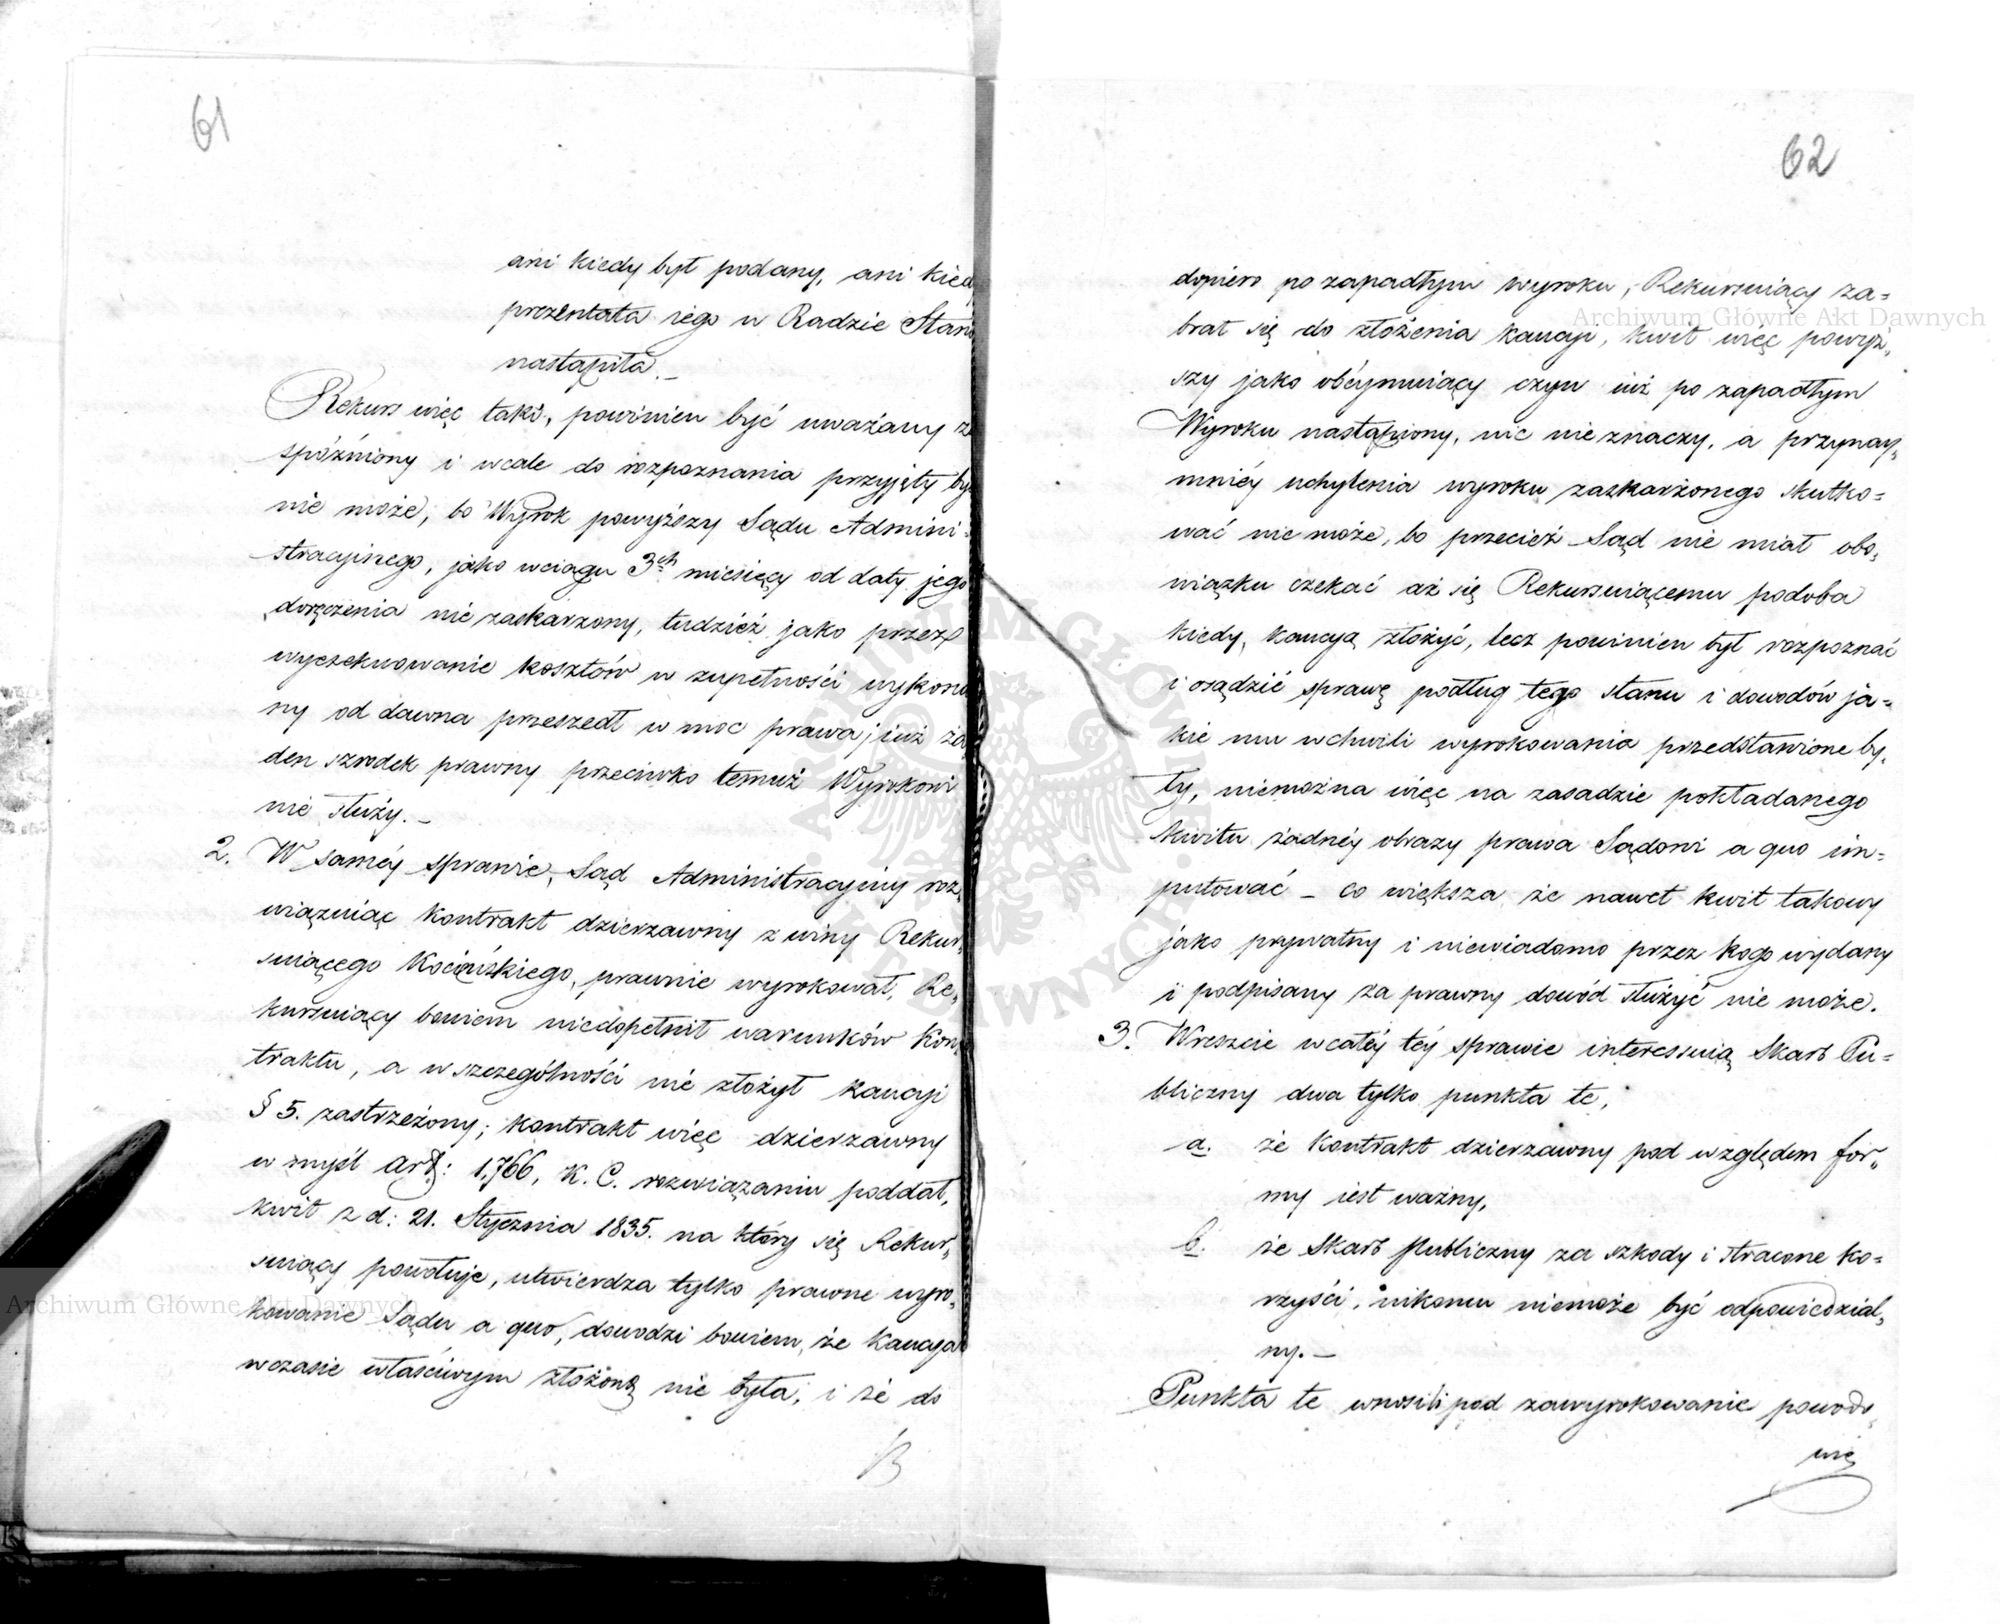 61
ani kiedy był podany, ani kied
prezentata iego w Radzie Stanu
nastąpiła. _
Rekurs więc taki, powinien być uważany z
spóźniony i wcale do rozpoznania przyjęty by
nie może, bo Wyrok powyższy Sądu Admini-
stracyjnego, jako wciągu 3ch miesięcy od daty jego
doręczenia nie zaskarzony, tudzież jako przez
wyexekwowanie kosztów w zupełności wykona
ny od dawna przeszedł w moc prawa, iuż ża
den szrodek prawny przeciwko temuż Wyrokowi
nie służy. _
2. W saméy sprawie, Sąd Administracyiny roz„
wiązuiąc Kontrakt dzierzawny z winy Rekur„
suiącego Kocińskiego, prawnie wyrokował, Re„
kursuiący bowiem niedopełnił warunków Kon„
traktu, a w szczególności nie złożył Kaucyi
§ 5. zastrzeżony; Kontrakt więc dzierzawny
w myśl Art: 1,766, K. C. rozwiązaniu poddał,
kwit z d: 21. Stycznia 1835. na który się Rekur„
suiący powołuje, utwierdza tylko prawne wyro„
kowanie Sądu a quo, dowodzi bowiem, że Kaucya
wczasie właściwym złożoną nie była, i że do
62
dopiero po zapadłym wyroku, Rekursuiący za=
brał się do złożenia kaucyi, kwit więc powyż„
szy jako obéymuiący czyn iuż po zapadłym
Wyroku nastąpiony, nic nie znaczy, a przynay„
mniéy uchylenia wyroku zaskarżonego skutko=
wać nie może, bo przecież Sąd nie miał obo„
wiązku czekać aż się Rekursuiącemu podoba
kiedy, kaucyą złożyć, lecz powinien był rozpoznać
i osądzić sprawę podług tego stanu i dowodów ja=
kie mu w chwili wyrokowania przedstawione by„
ły, niemożna więc na zasadzie pokładanego
kwitu żadnéy obrazy prawa Sądowi a quo im=
putować _ co większa że nawet kwit takowy
jako prywatny i niewiadomo przez kogo wydany
i podpisany za prawny dowód służyć nie może.
3. Wreszcie w całéy téy sprawie interessuią Skarb Pu=
bliczny dwa tylko punkta te,
a. że Kontrakt dzierzawny pod względem for„
my iest ważny,
b. że Skarb Publiczny za szkody i stracone ko=
rzyści, nikomu niemoże być odpowiedzial„
ny. _
Punkta te wnosili pod zawyrokowanie powodo„
wie
Archiwum Główne Akt Dawnych
Archiwum Główne Akt Dawnych